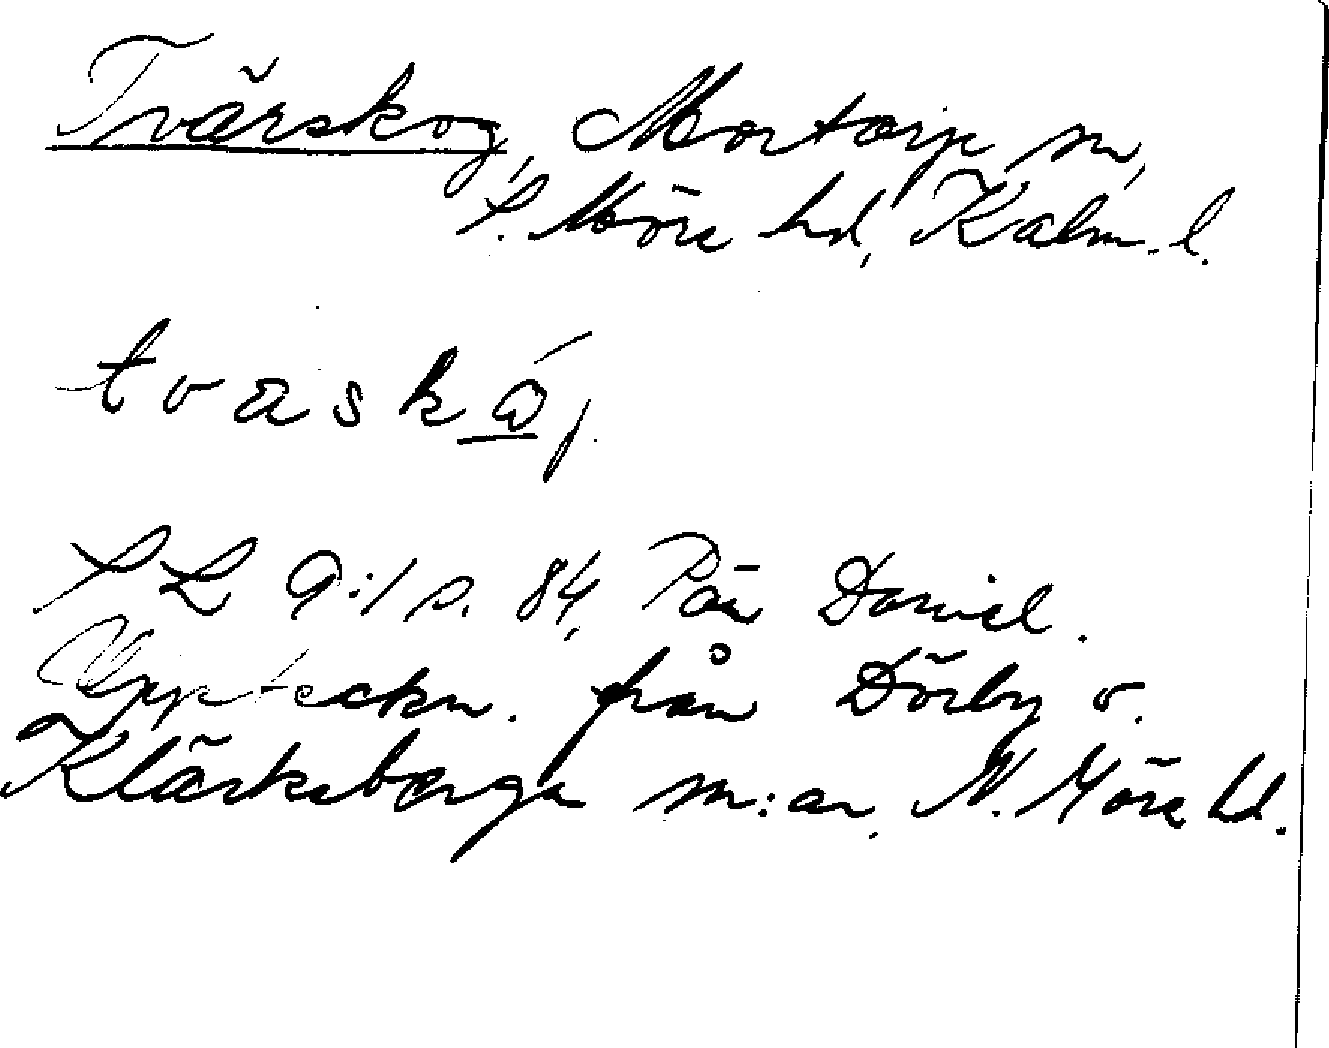 Tvärskog, Mortorp sn,
S. Möre hd, Kalm. l.
tvaskǻ,
SL 9:1 s. 84, Pär Daniel.
Uppteckn. från Dörby o.
Kläckeberga sn:ar, N. Möre hd.